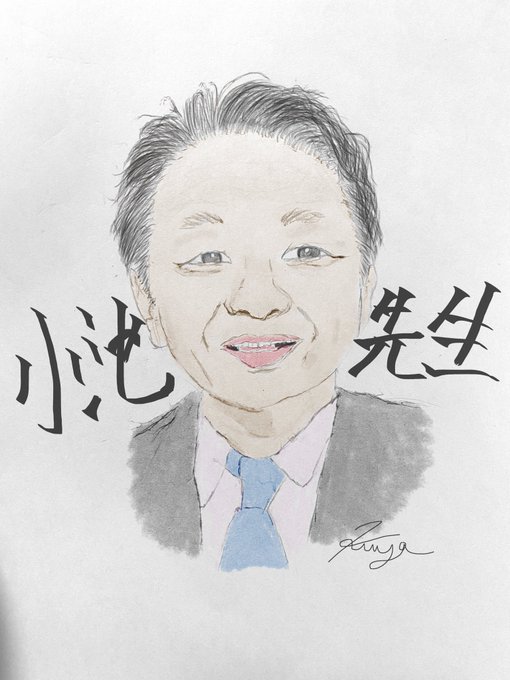 小池先生